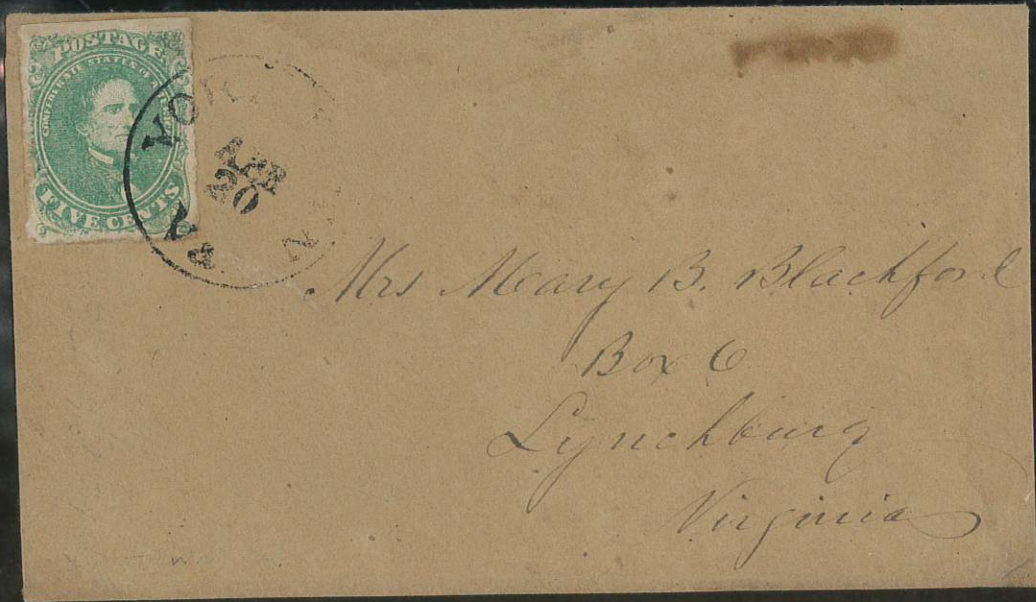 POSTAGE
CONFEDERATE STATES OF
FIVE CENTS
YO
N
VA
20
Mrs Mary B. Blackford
Box 6
Lynchburg
Virginia